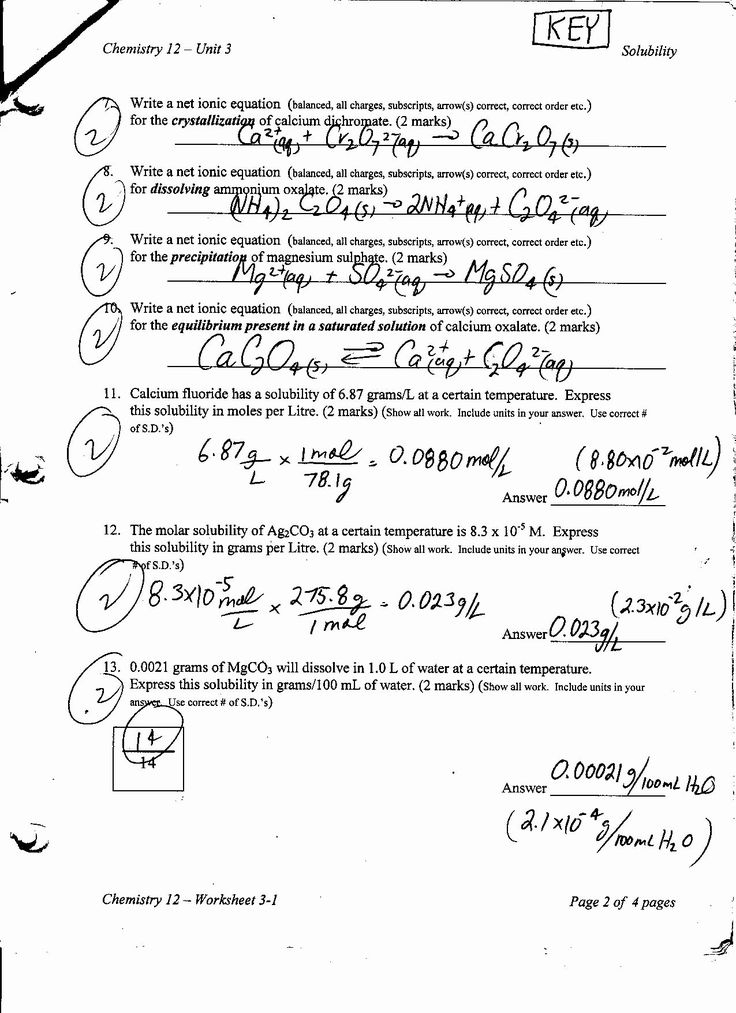 KEY
Chemistry 12 – Unit 3
Solubility
7. Write a net ionic equation (balanced, all charges, subscripts, arrow(s) correct, correct order etc.)
for the crystallization of calcium dichromate. (2 marks)
2
Ca²⁺(aq) + Cr₂O₇²⁻(aq) → CaCr₂O₇(s)
8. Write a net ionic equation (balanced, all charges, subscripts, arrow(s) correct, correct order etc.)
for dissolving ammonium oxalate. (2 marks)
2
(NH₄)₂C₂O₄(s) → 2NH₄⁺(aq) + C₂O₄²⁻(aq)
9. Write a net ionic equation (balanced, all charges, subscripts, arrow(s) correct, correct order etc.)
for the precipitation of magnesium sulphate. (2 marks)
2
Mg²⁺(aq) + SO₄²⁻(aq) → MgSO₄(s)
10. Write a net ionic equation (balanced, all charges, subscripts, arrow(s) correct, correct order etc.)
for the equilibrium present in a saturated solution of calcium oxalate. (2 marks)
2
CaC₂O₄(s) ⇌ Ca²⁺(aq) + C₂O₄²⁻(aq)
11. Calcium fluoride has a solubility of 6.87 grams/L at a certain temperature. Express
this solubility in moles per Litre. (2 marks) (Show all work. Include units in your answer. Use correct #
of S.D.'s)
2
6.87 g/L × 1 mol/78.1 g = 0.0880 mol/L (8.80×10⁻² mol/L)
Answer 0.0880 mol/L
12. The molar solubility of Ag₂CO₃ at a certain temperature is 8.3 x 10⁻⁵ M. Express
this solubility in grams per Litre. (2 marks) (Show all work. Include units in your answer. Use correct
# of S.D.'s)
2
8.3×10⁻⁵ mol/L × 275.8 g/1 mol = 0.023 g/L (2.3×10⁻² g/L)
Answer 0.023 g/L
13. 0.0021 grams of MgCO₃ will dissolve in 1.0 L of water at a certain temperature.
Express this solubility in grams/100 mL of water. (2 marks) (Show all work. Include units in your
answer. Use correct # of S.D.'s)
2
14
14
Answer 0.00021 g/100 mL H₂O
(2.1×10⁻⁴ g/100 mL H₂O)
Chemistry 12 – Worksheet 3-1
Page 2 of 4 pages